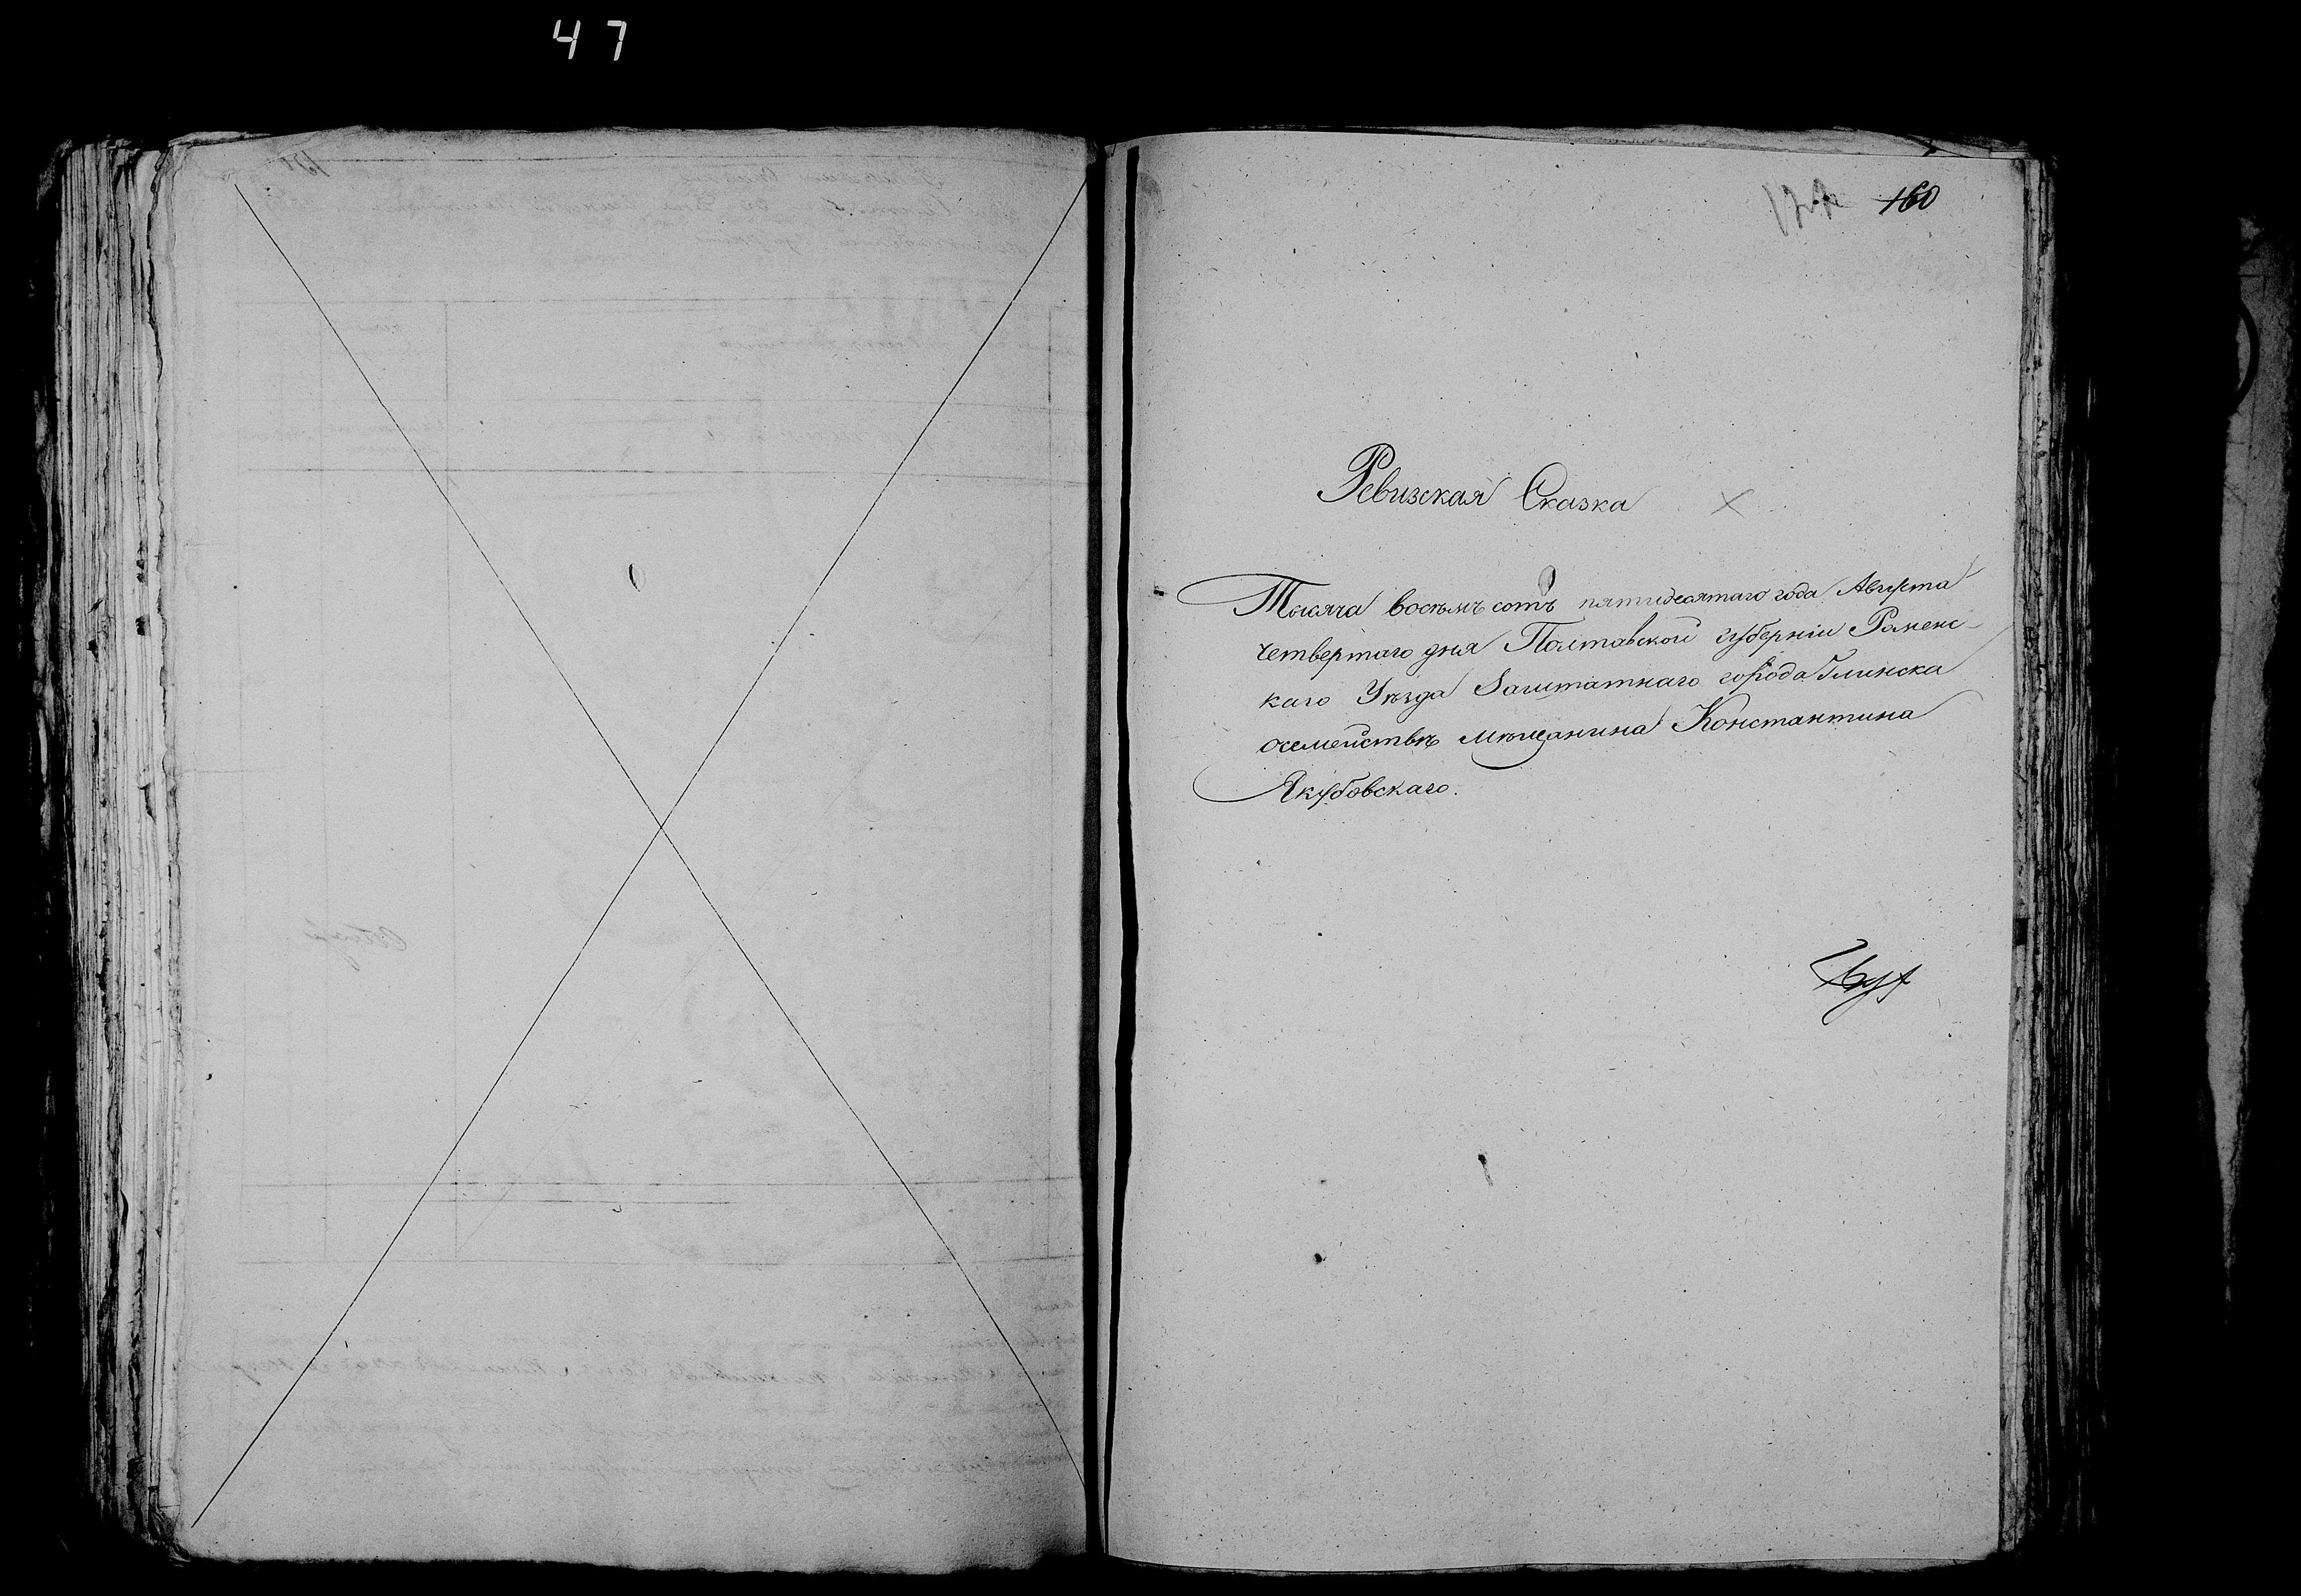 47
160
Ревизская Сказка
Тысяча восемъ сотъ пятидесятаго года Августа
четвертаго дня Полтавской губерніи Роменс-
каго Уѣзда Заштатнаго города Глинска
осемействѣ мѣщанина Константина
Якубовскаго.